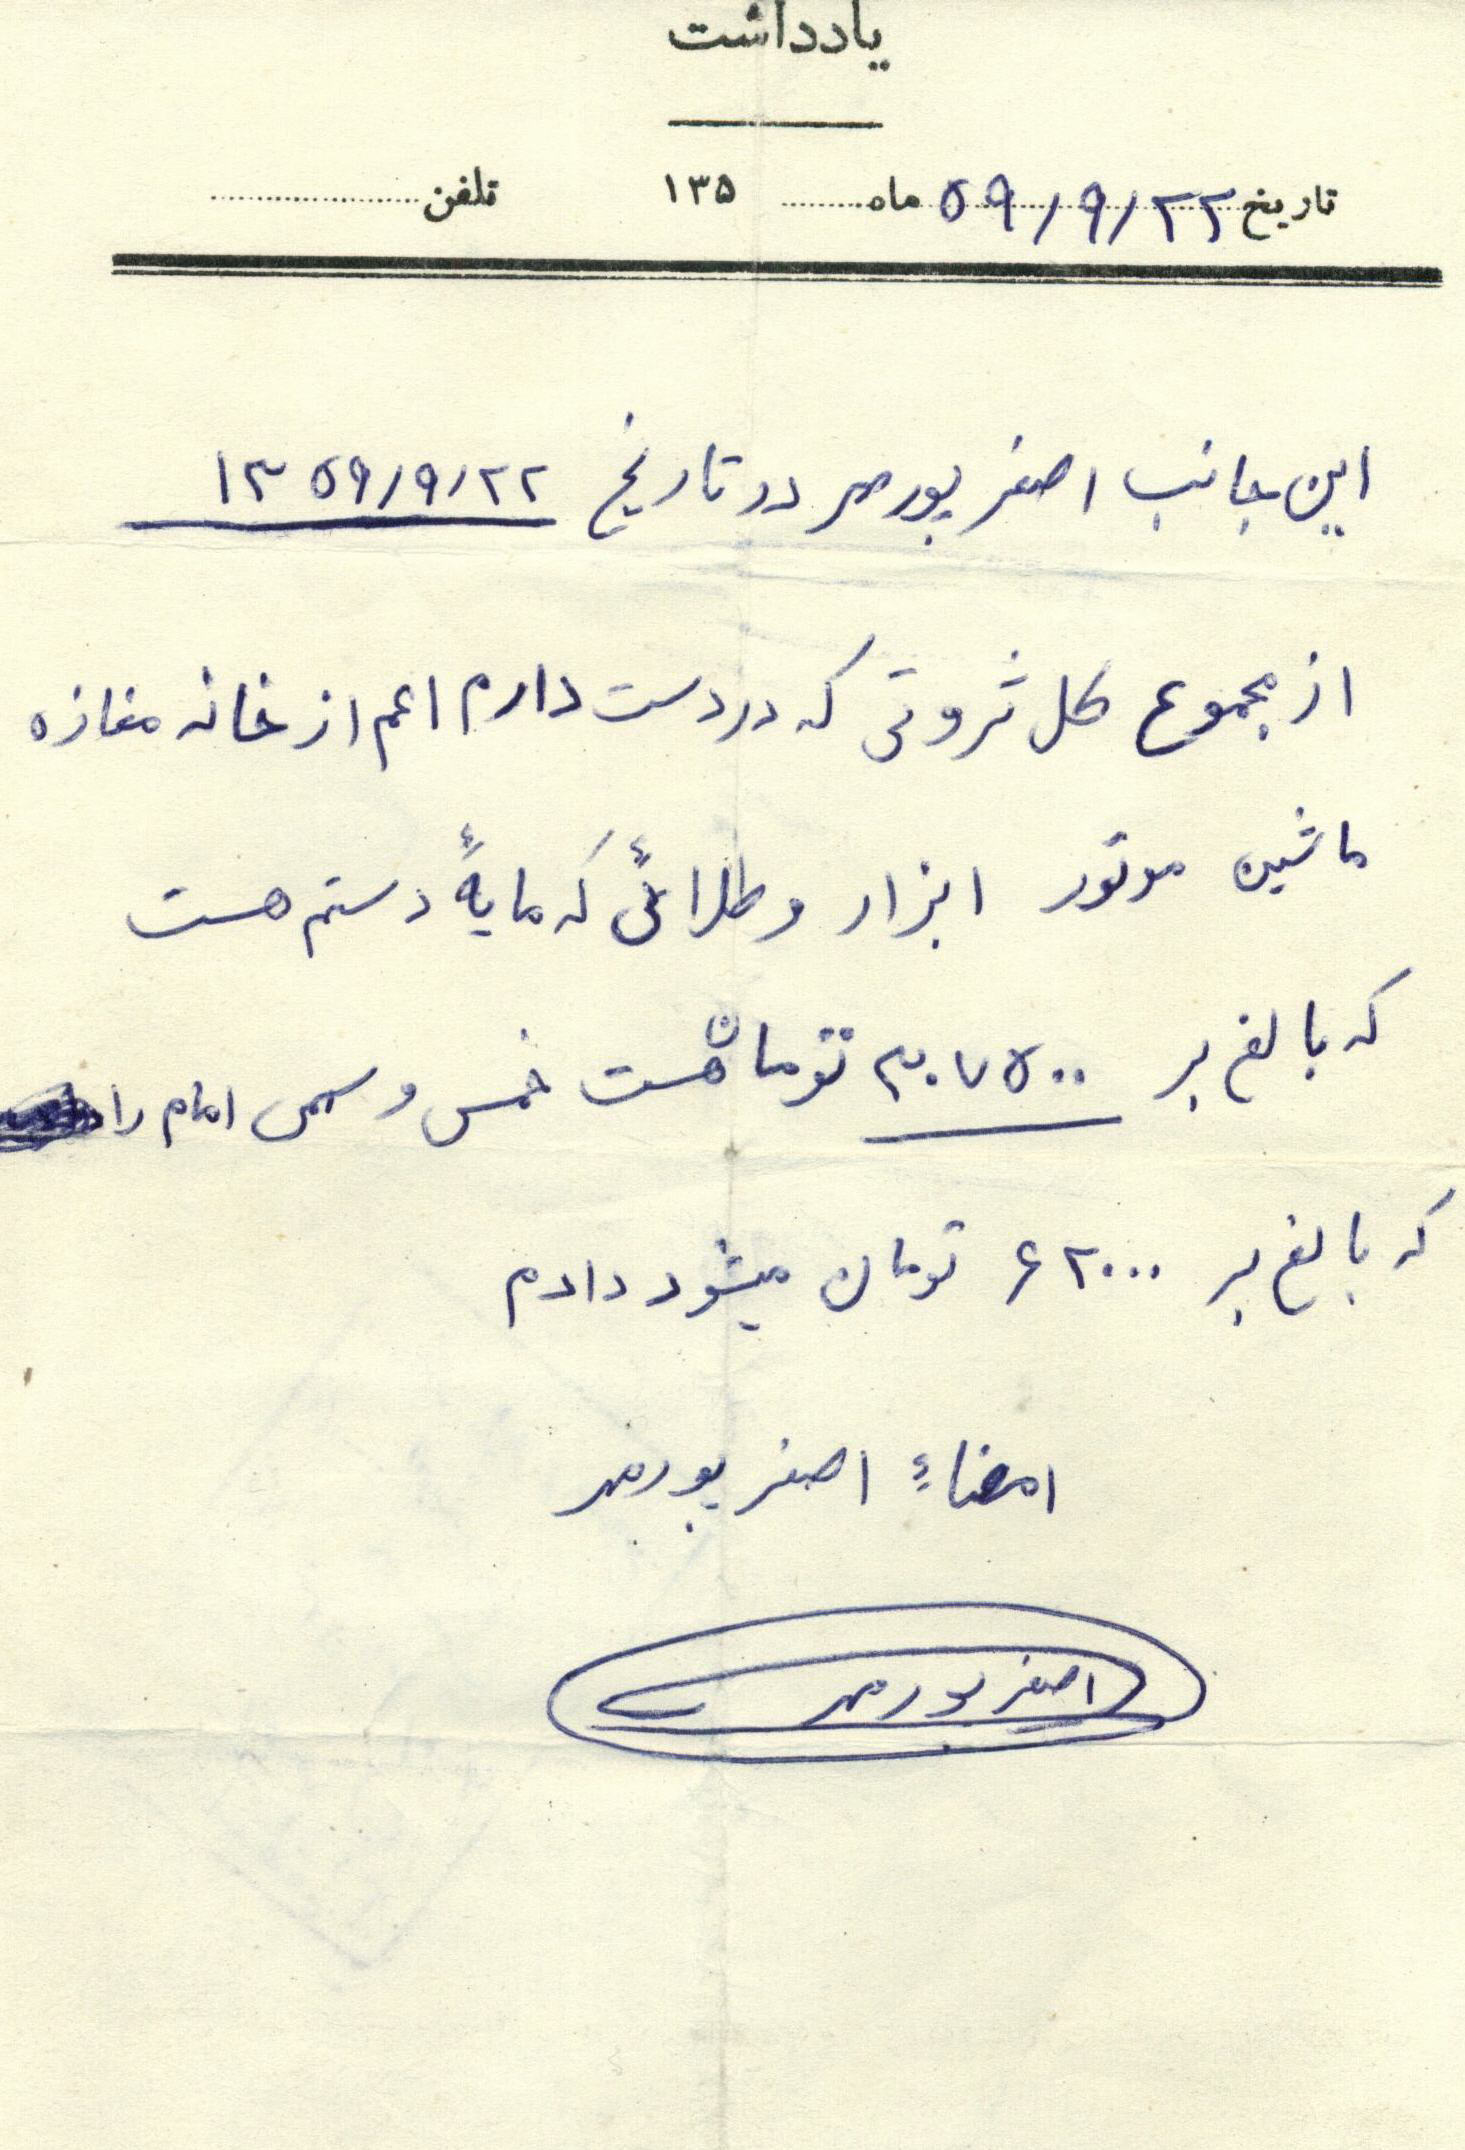 یادداشت
تاریخ ۵۹/۹/۲۲ ماه ۱۳۵ تلفن
این جانب اصغر پورمهر در تاریخ ۱۳۵۹/۹/۲۲
از مجموع کل ثروتی که در دست دارم اعم از خانه مغازه
ماشین موتور ابزار و طلائی که مایۀ دستم هست
که بالغ بر ۳۰۷۵۰۰ تومان هست خمس و سهمی امام را
که بالغ بر ۶۲۰۰۰ تومان میشود دادم
امضاء اصغر پورمهر
اصغر پورمهر